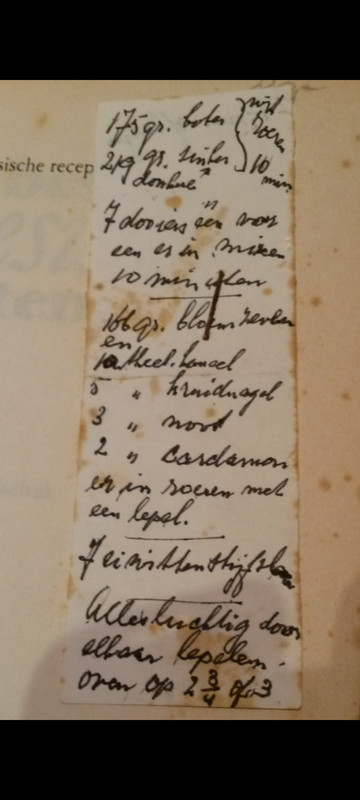 175 gr. boter } wit
roeren
219 gr. suiker 10
donkere min
sische recep
7 dooiers een voor
een er in mixen
10 minuten
166 gr. bloem zeven
en
10 theel. kaneel
5 " kruidnagel
3 " noot
2 " cardamon
er in roeren met
een lepel.
7 eiwitten stijfslaan
Alles luchtig door
elkaar lepelen.
oven op 2 3/4 of 3